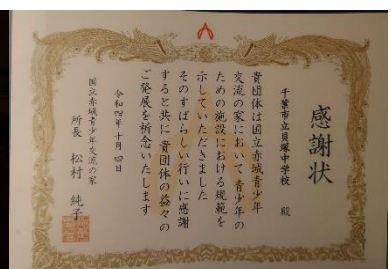 感謝状
千葉市立貝塚中学校 殿
貴団体は国立赤城青少年
交流の家において青少年の
ための施設における規範を
示していただきました
そのすばらしい行いに感謝
すると共に貴団体の益々の
ご発展を祈念いたします
令和四年十月四日
国立赤城青少年交流の家
所長 松村 純子